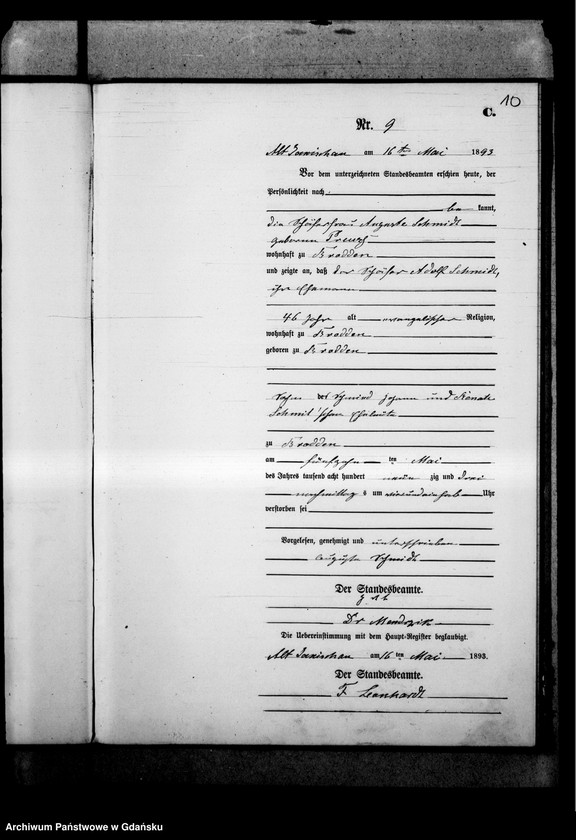 10
C.
Nr. 9
Alt Janischau am 16ten Mai 1893
Vor dem unterzeichneten Standesbeamten erschien heute, der
Persönlichkeit nach
be kannt,
die Schäferfrau Auguste Schmidt
geborene Preuß
wohnhaft zu Brodden
und zeigte an, daß der Schäfer Adolf Schmidt,
ihr Ehemann
46 Jahr alt evangelischer Religion,
wohnhaft zu Brodden
geboren zu Brodden
Sohn des Schmied Johann und Renate
Schmidt'schen Eheleute
zu Brodden
am fünfzehn ten Mai
des Jahres tausend acht hundert neun zig und drei
nachmittags um Uhr
verstorben sei
Vorgelesen, genehmigt und unterschrieben
Auguste Schmidt
Der Standesbeamte.
Dr Mendrzik
Die Uebereinstimmung mit dem Haupt-Register beglaubigt.
Alt Janischau am 16ten Mai 1893.
Der Standesbeamte.
F Leonhardt
Archiwum Państwowe w Gdańsku